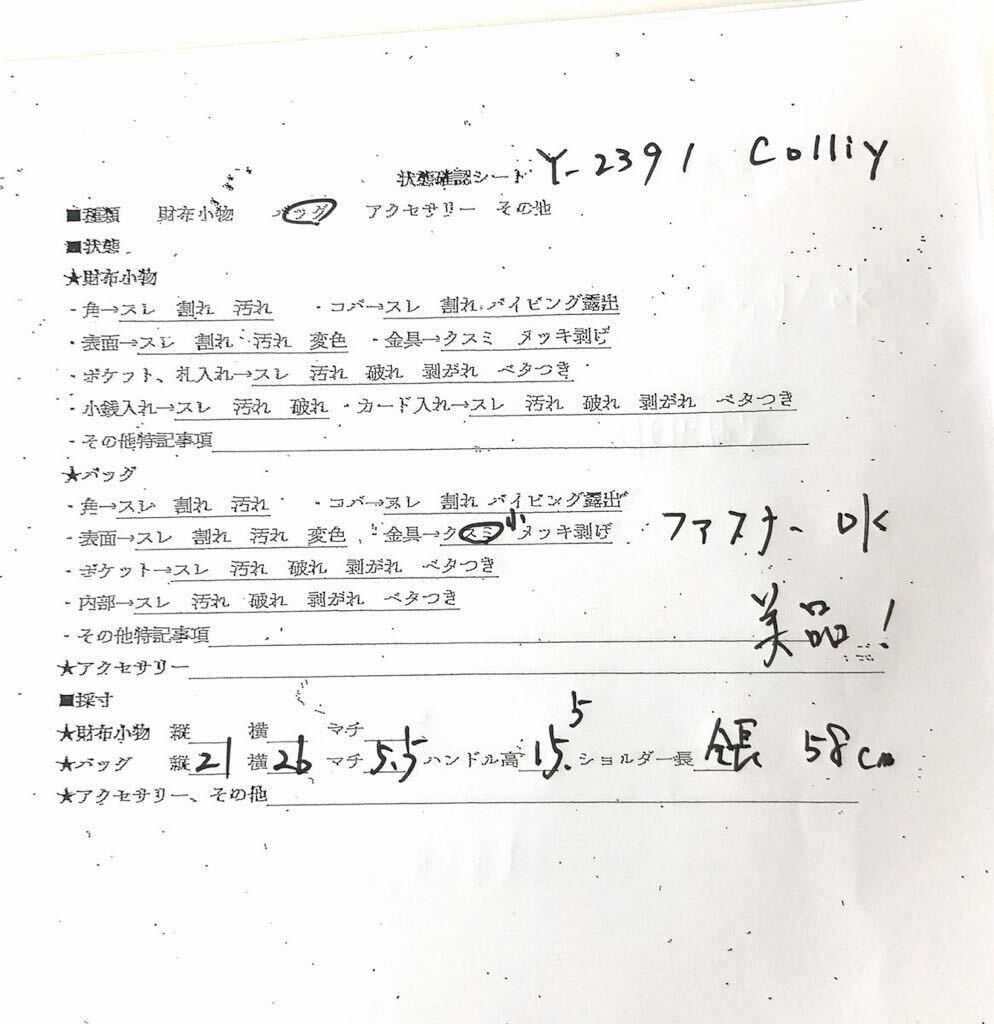 状態確認シート Y-2391 Colliy
■種類 財布小物 バッグ アクセサリー その他
■状態
★財布小物
・角→スレ 割れ 汚れ ・コバ→スレ 割れ パイピング露出
・表面→スレ 割れ 汚れ 変色 ・金具→クスミ メッキ剥げ
・ポケット、札入れ→スレ 汚れ 破れ 剥がれ ベタつき
・小銭入れ→スレ 汚れ 破れ ・カード入れ→スレ 汚れ 破れ 剥がれ ベタつき
・その他特記事項
★バッグ
・角→スレ 割れ 汚れ ・コバ→スレ 割れ パイピング露出
・表面→スレ 割れ 汚れ 変色 ・金具→クスミ小 メッキ剥げ ファスナー OK
・ポケット→スレ 汚れ 破れ 剥がれ ベタつき
・内部→スレ 汚れ 破れ 剥がれ ベタつき
・その他特記事項 美品!
★アクセサリー
■採寸
★財布小物 縦 横 マチ
★バッグ 縦21 横26 マチ5.5 ハンドル高15.5 ショルダー長 全長 58cm
★アクセサリー、その他